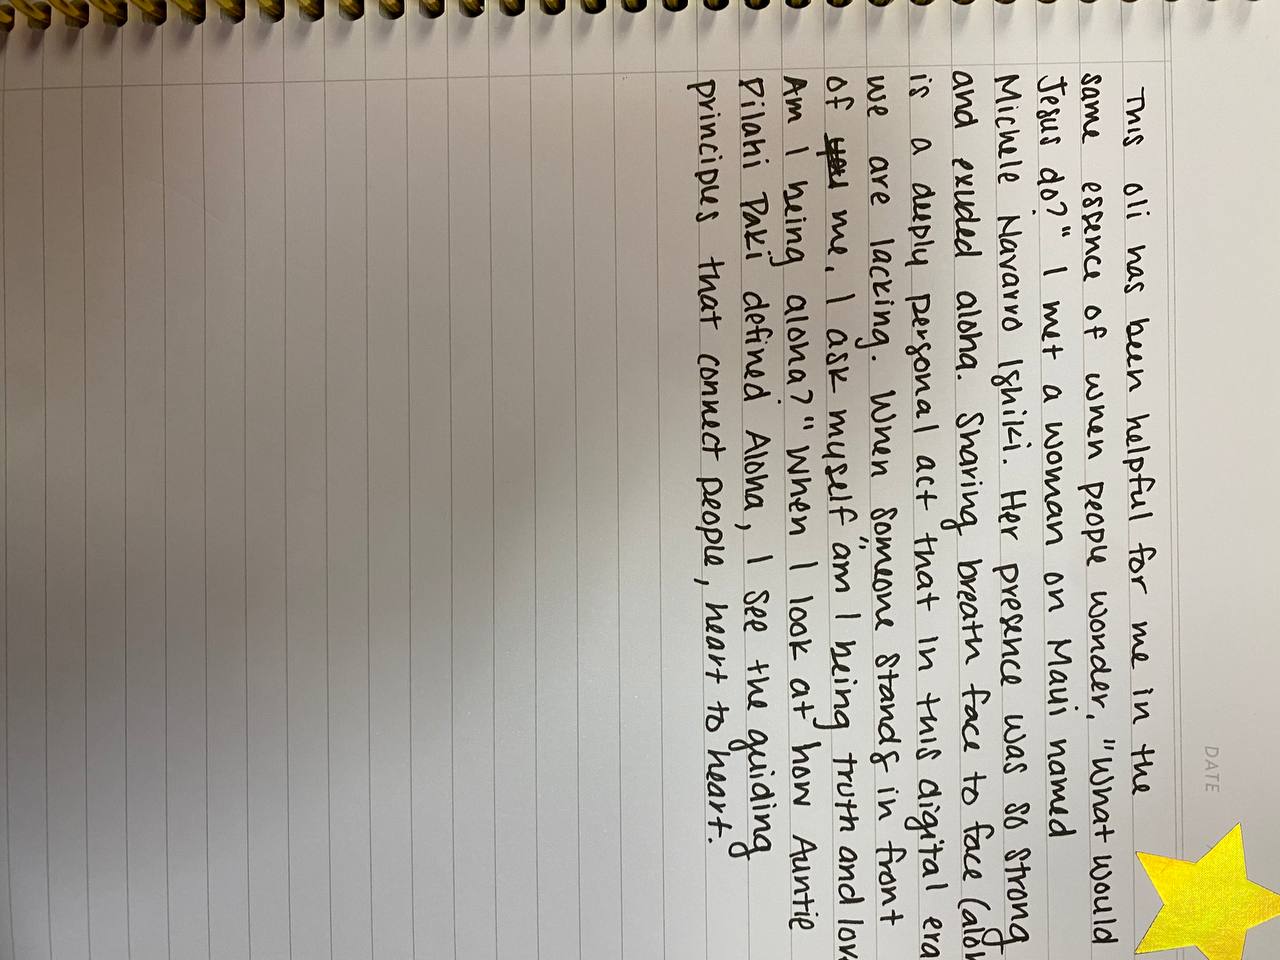 DATE
This oli has been helpful for me in the
same essence of when people wonder, "What would
Jesus do?" I met a woman on Maui named
Michele Navarro Ishiki. Her presence was so strong
and exuded aloha. Sharing breath face to face
is a deeply personal act that in this digital era
we are lacking. When someone stands in front
of me, I ask myself "am I being truth and
Am I being aloha?" When I look at how Auntie
Pilahi Paki defined Aloha, I see the guiding
principles that connect people, heart to heart.